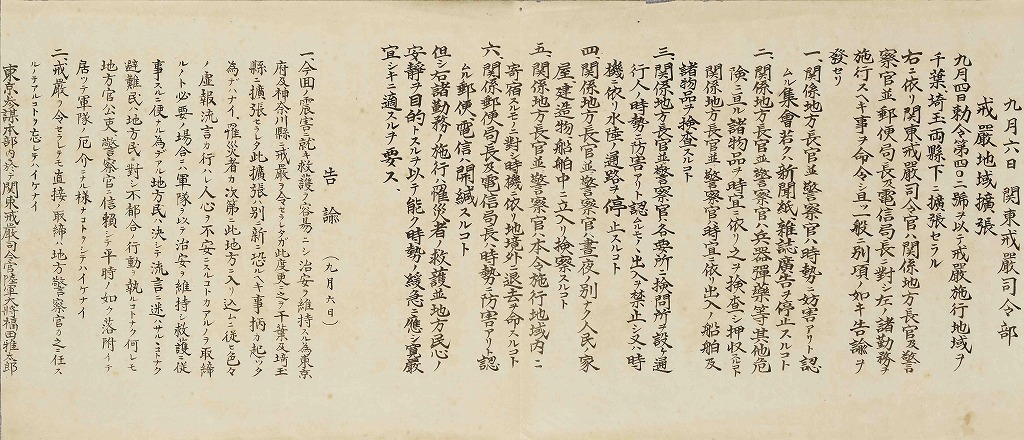 九月六日 関東戒嚴司令部
戒嚴地域擴張
九月四日勅令第四〇二號ヲ以テ戒嚴施行地域ヲ
千葉、埼玉両縣下ニ擴張セラル
右ニ依リ関東戒嚴司令官ハ関係地方長官及警
察官並郵便局長及電信局長ニ對シ左ノ諸勤務ヲ
施行スヘキ事ヲ命令シ且一般ニ別項ノ如キ告諭ヲ
發セリ
一、関係地方長官並警察官ハ時勢ニ妨害アリト認
ムル集會若クハ新聞紙雑誌廣告ヲ停止スルコト
二、関係地方長官並警察官ハ兵器彈藥等其他危
険ニ亘ル諸物品ヲ時宜ニ依リ之ヲ検査シ押收スルコト
関係地方長官並警察官ハ時宜ニ依リ出入ノ船舶及
諸物品ヲ検査スルコト
三、関係地方長官並警察官ハ各要所ニ検問所ヲ設ケ通
行人ノ時勢ニ防害アリト認ムルモノノ出入ヲ禁止シ又ハ時
機ニ依リ水陸ノ通路ヲ停止スルコト
四、関係地方長官並警察官ハ晝夜ノ別ナク人民ノ家
屋、建造物、船舶中ニ立入リ検察スルコト
五、関係地方長官並警察官ハ本令施行地域内ニ
寄宿スルモノニ對シ時機ニ依リ地境外ニ退去ヲ命スルコト
六、関係郵便局長及電信局長ハ時勢ニ防害アリト認
ムル郵便、電信ハ開緘スルコト
但シ右諸勤務ノ施行ハ罹災者ノ救護並地方民心ノ
安靜ヲ目的トスルヲ以テ能ク時勢ノ緩急ニ應シ寛嚴
宜シキニ適スルヲ要ス、
告諭 (九月六日)
一、今回ノ震害ニ就キ救護ヲ容易ニシ治安ヲ維持スル為東京
府及神奈川縣ニ戒嚴ヲ令セラレタガ此度更ニ之ヲ千葉及埼玉
縣ニ擴張セラレタ此擴張ハ別ニ新ニ恐ルヘキ事柄カ起ツタ
為デハナイ、罹災者カ次第ニ此地方ニ入リ込ムニ従ヒ色々
ノ虚報流言カ行ハレ人心ヲ不安ニスルコトカアルノヲ取締
ルノト必要ノ場合ニハ軍隊ヲ以テ治安ヲ維持シ救護ニ従
事スルニ便スル為デアル地方民ハ決シテ流言ニ迷ハサルルコトナク
避難民ハ地方民ニ對シ不都合ノ行動ヲ執ルコトナク何レモ
地方官公吏、警察官ニ信頼シテ平時ノ如ク落附イテ
居ツテ軍隊ノ厄介ニナル様ナコトヲシテハイケナイ
二、戒嚴ヲ令セラレテモ直接ノ取締ハ地方警察官カ之ニ任ス
ルノテアルコトヲ忘レテハイケナイ
東京参謀本部内ニ於テ 関東戒嚴司令官陸軍大將福田雅太郎